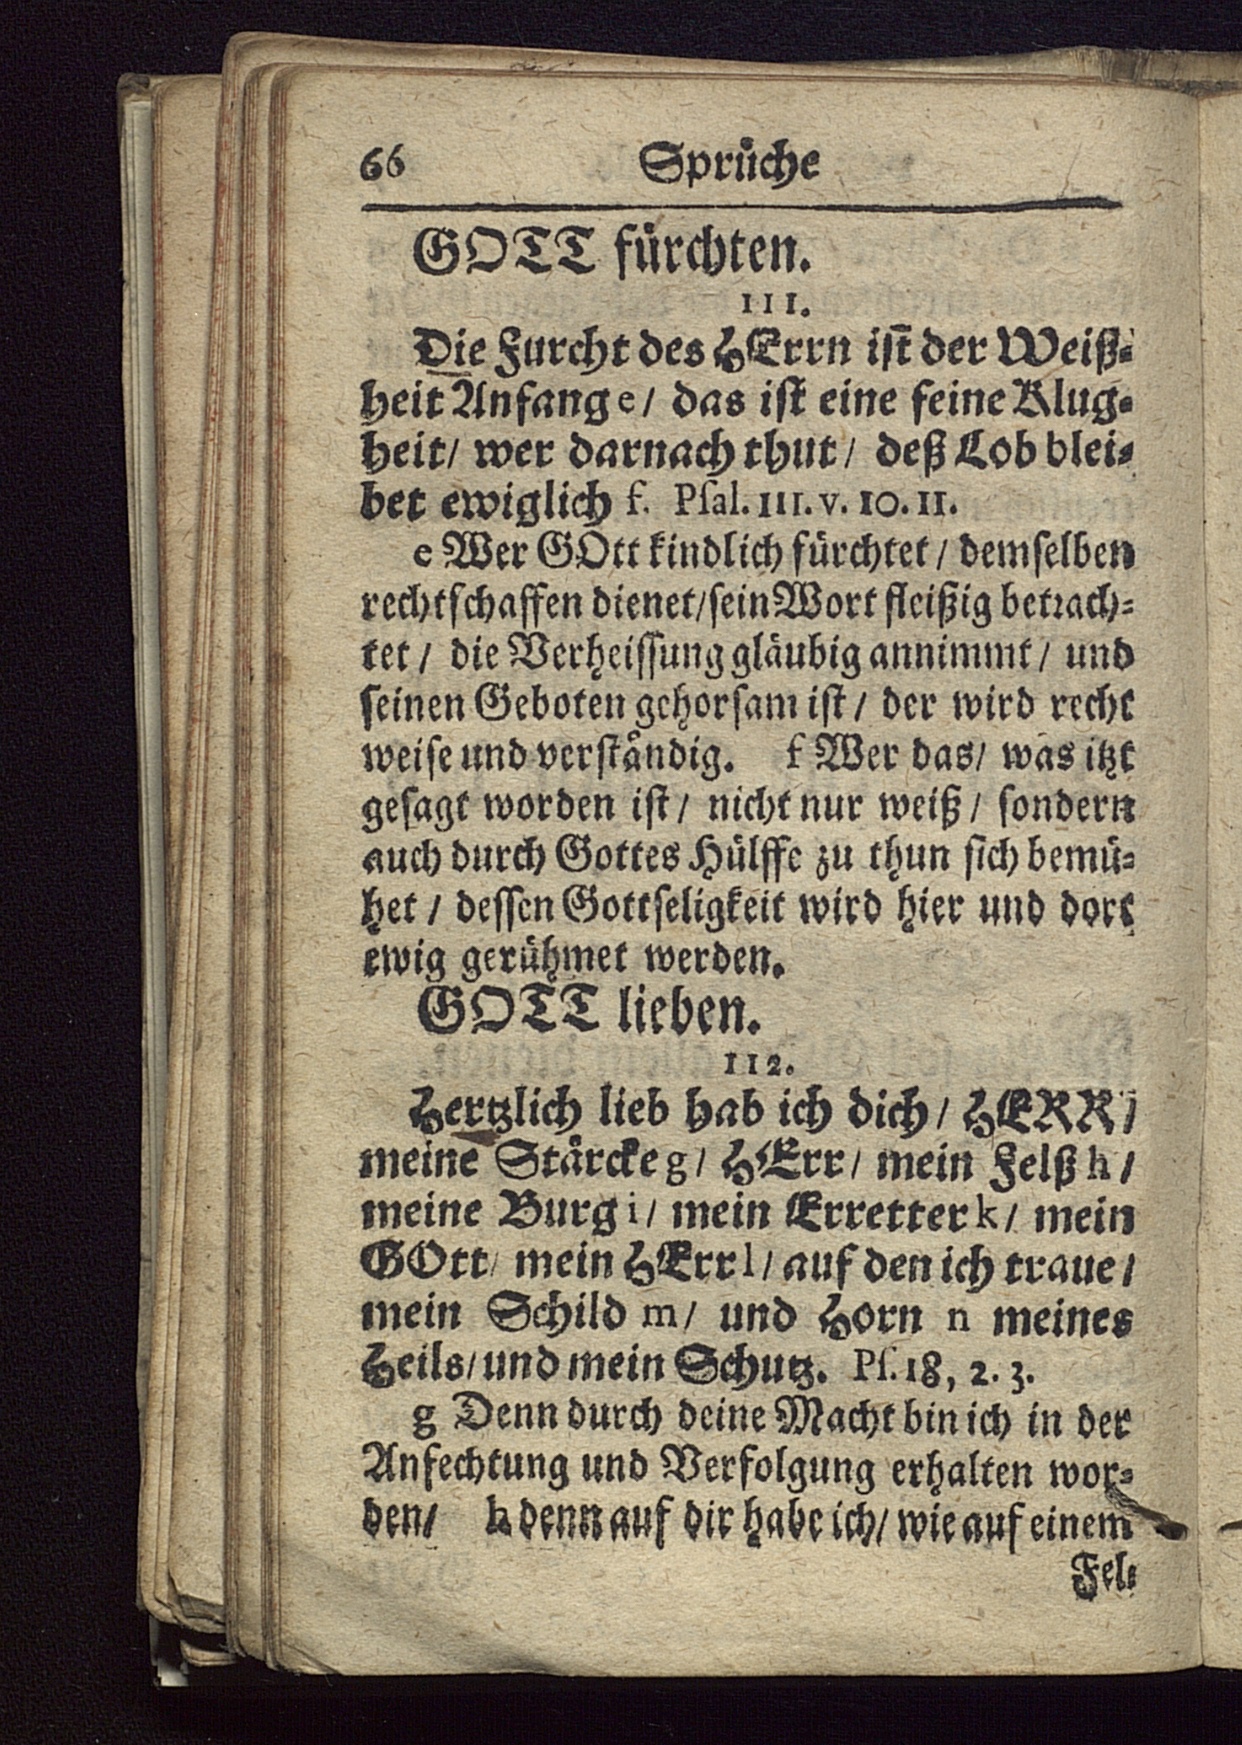 66 Sprüche
GOTT fürchten.
111.
Die Furcht des HErrn ist der Weiß-
heit Anfang e/ das ist eine feine Klug-
heit/ wer darnach thut/ deß Lob blei-
bet ewiglich f. Psal. 111. v. 10. 11.
e Wer GOtt kindlich fürchtet/ demselben
rechtschaffen dienet/sein Wort fleißig betrach-
tet/ die Verheissung gläubig annimmt/ und
seinen Geboten gehorsam ist/ der wird recht
weise und verständig. f Wer das/ was itzt
gesagt worden ist/ nicht nur weiß/ sondern
auch durch Gottes Hülffe zu thun sich bemü-
het/ dessen Gottseligkeit wird hier und dort
ewig gerühmet werden.
GOTT lieben.
112.
Hertzlich lieb hab ich dich/ HERR/
meine Stärcke g/ HErr/ mein Felß h/
meine Burg i/ mein Erretter k/ mein
GOtt/ mein HErr l/ auf den ich traue/
mein Schild m/ und Horn n meines
Heils/ und mein Schutz. Ps. 18, 2. 3.
g Denn durch deine Macht bin ich in der
Anfechtung und Verfolgung erhalten wor-
den/ h denn auf dir habe ich/ wie auf einem
Fel-